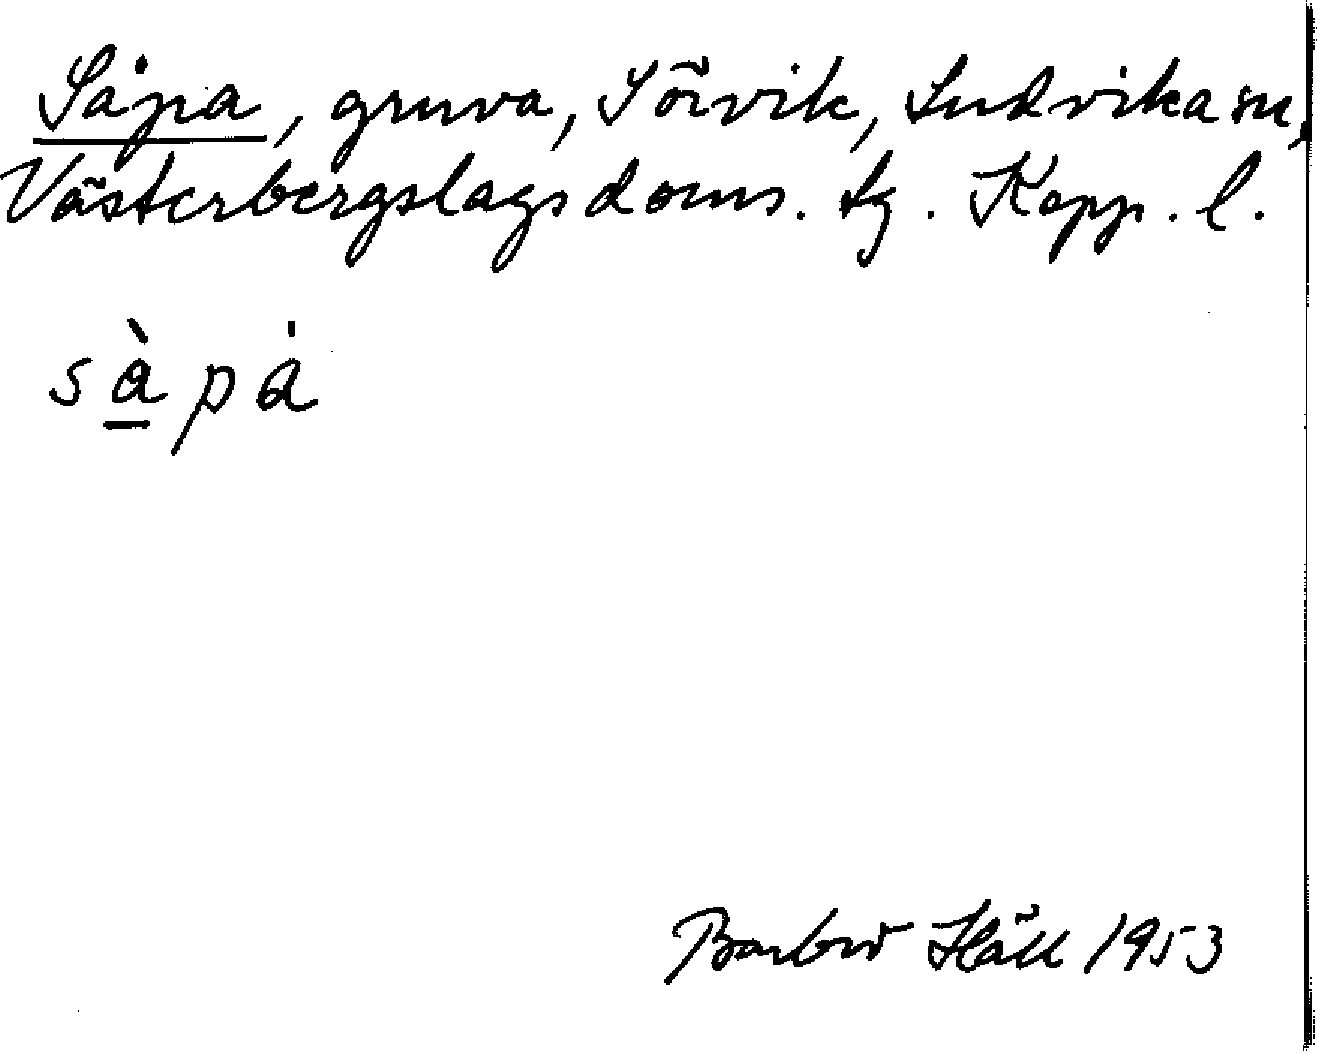 Såpa, gruva, Sörvik, Ludvika sn,
Västerbergslags doms. tg. Kopp. l.
sàpȧ
Barbro Häll 1953